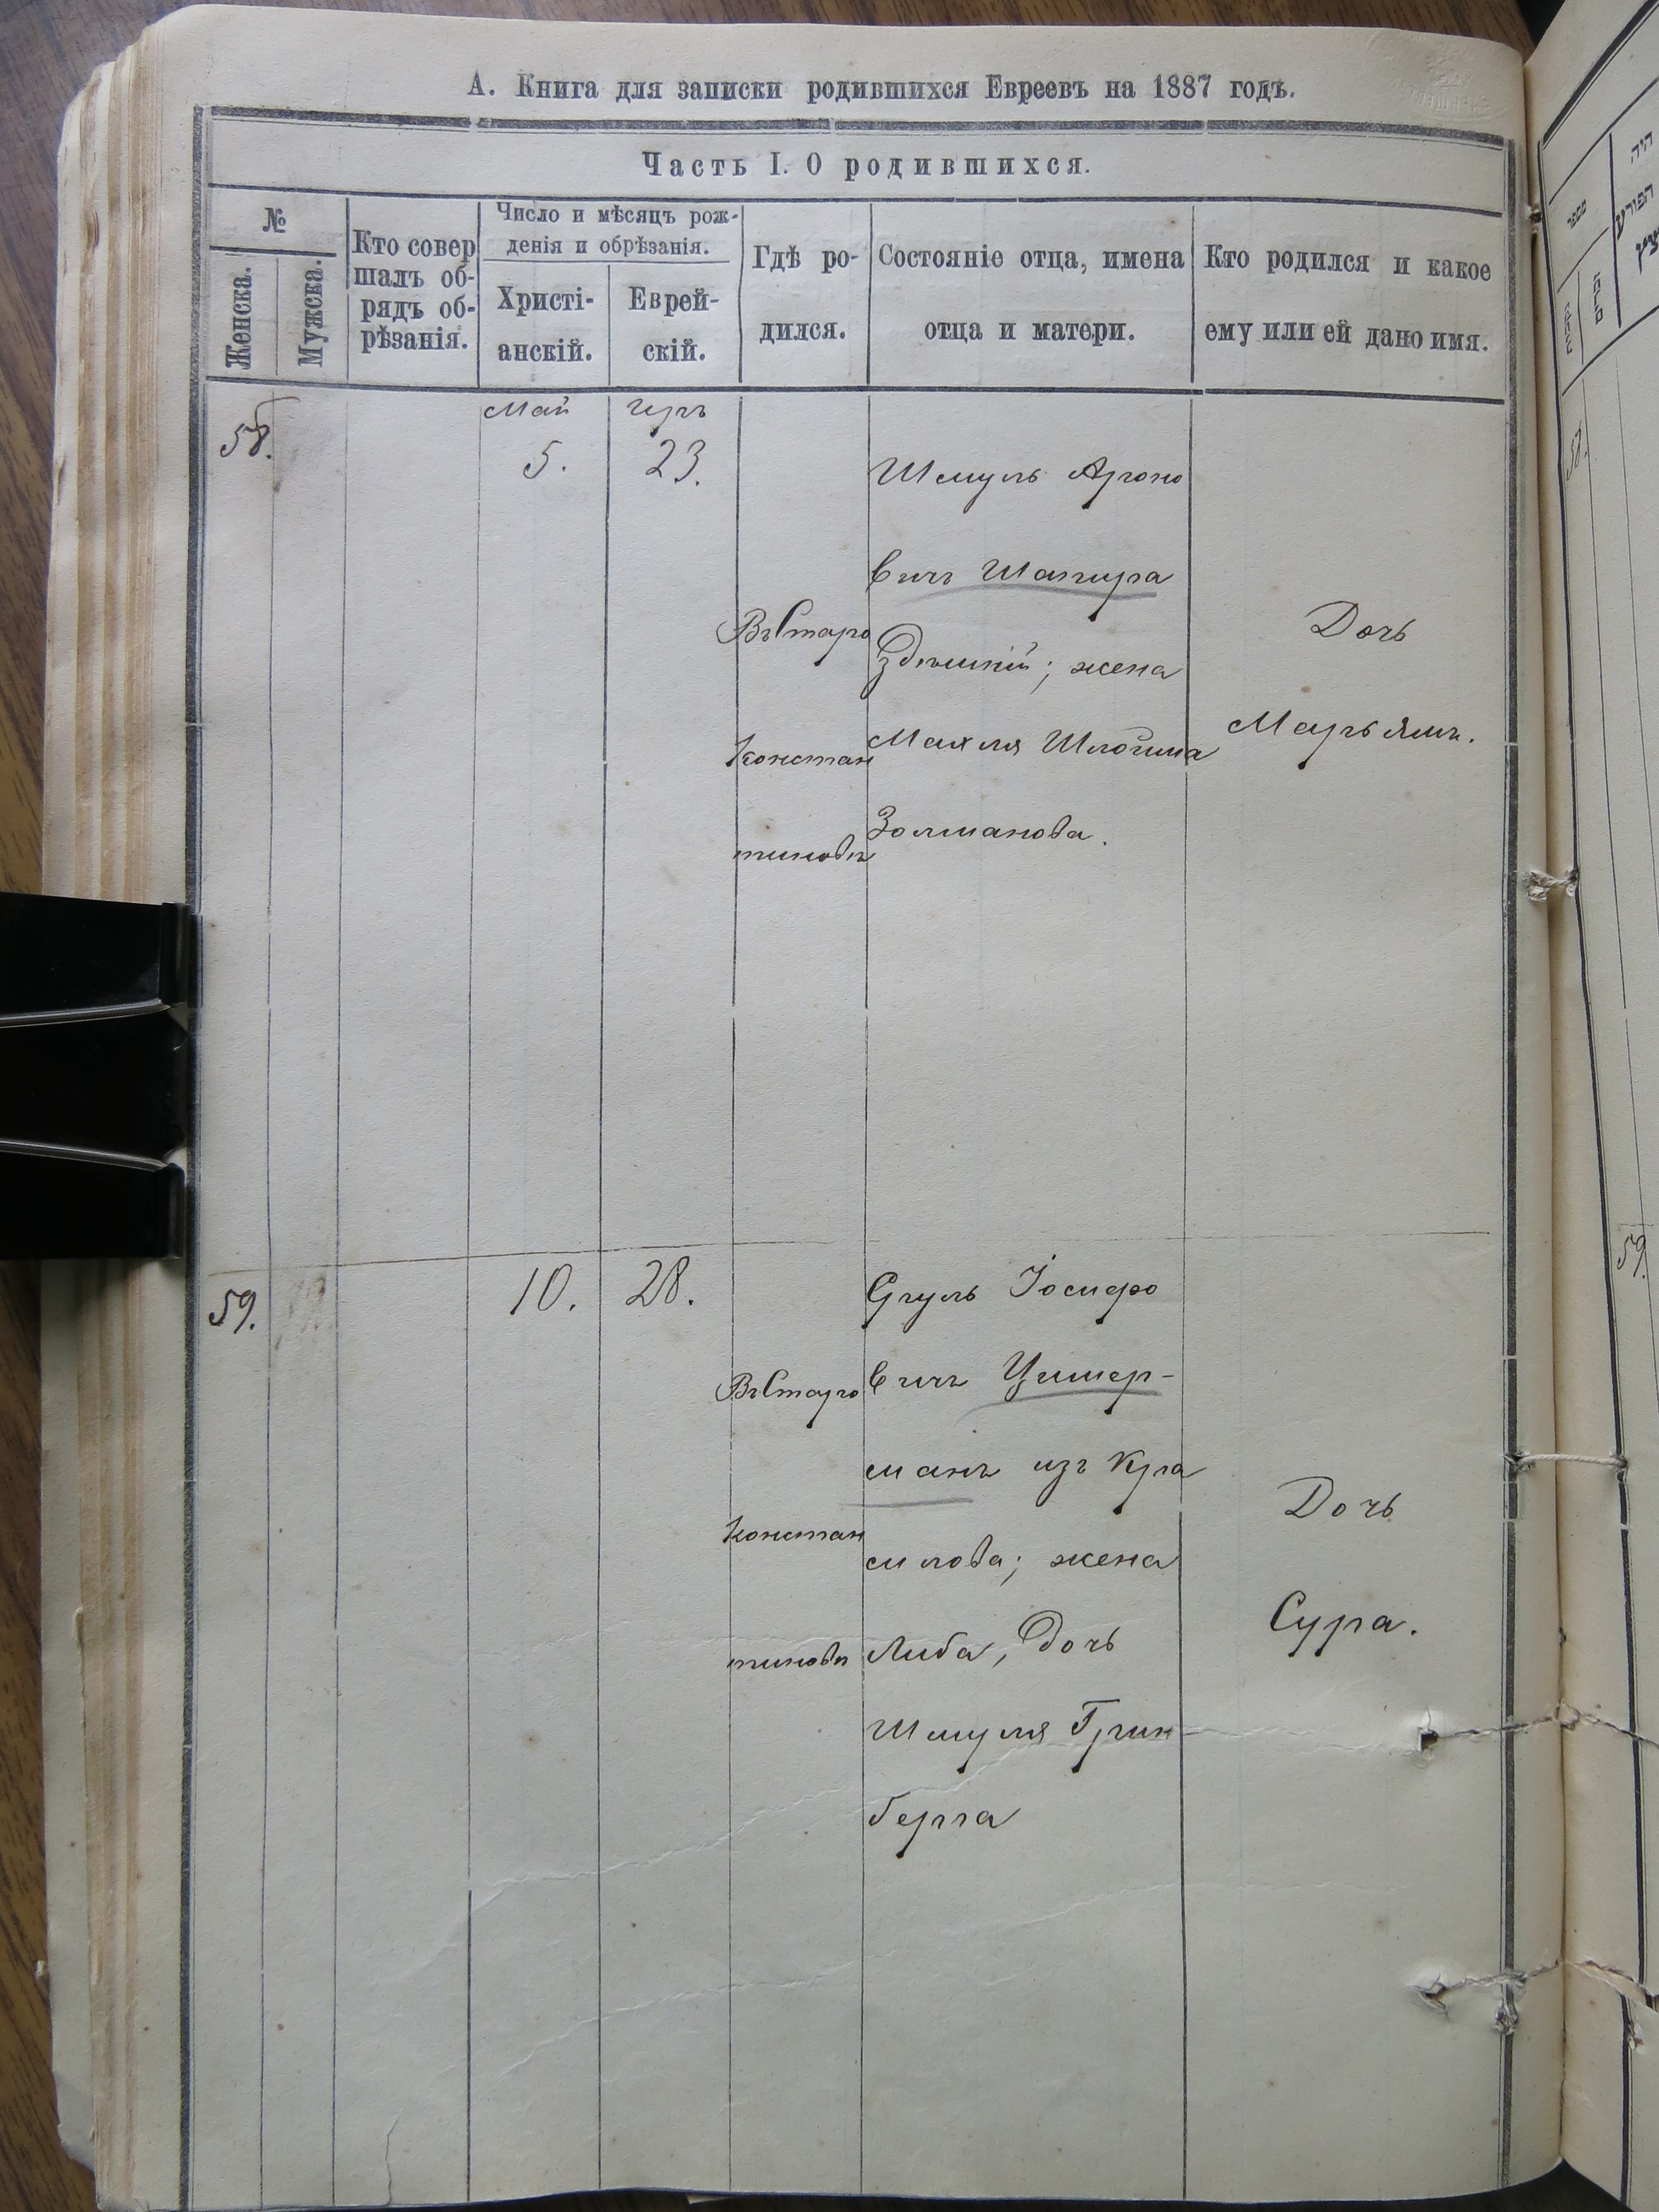 А. Книга для записки родившихся Евреевъ на 1887 годъ.
Часть I. О родившихся.
№
Женска.
Мужска.
Кто совер
шалъ об-
рядъ об-
рѣзанія.
Число и мѣсяцъ рож-
денія и обрѣзанія.
Христі-
анскій.
Еврей-
скій.
Гдѣ ро-
дился.
Состояніе отца, имена
отца и матери.
Кто родился и какое
ему или ей дано имя.
58.
Май
5.
Іиръ
23.
ВъСтаро
констан
тиновѣ
Шмуль Ароно
вичъ Шапира
здѣшній; жена
Махля Шлоима
Золманова.
Дочь
Марьямъ.
59.
10.
28.
ВъСтаро
констан
тиновѣ
Сруль Іосифо
вичъ Цимер-
манъ изъ Кра
силова; жена
Либа, дочь
Шмуля Грин-
берга
Дочь
Сура.
היה
מספר
58.
59.